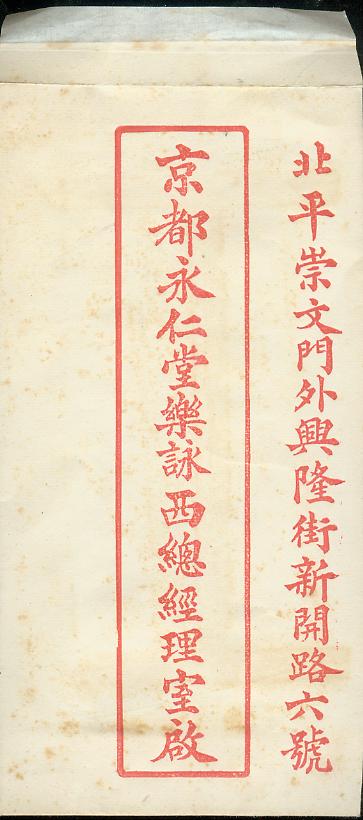 北平崇文門外興隆街新開路六號
京都永仁堂樂詠西總經理室啟